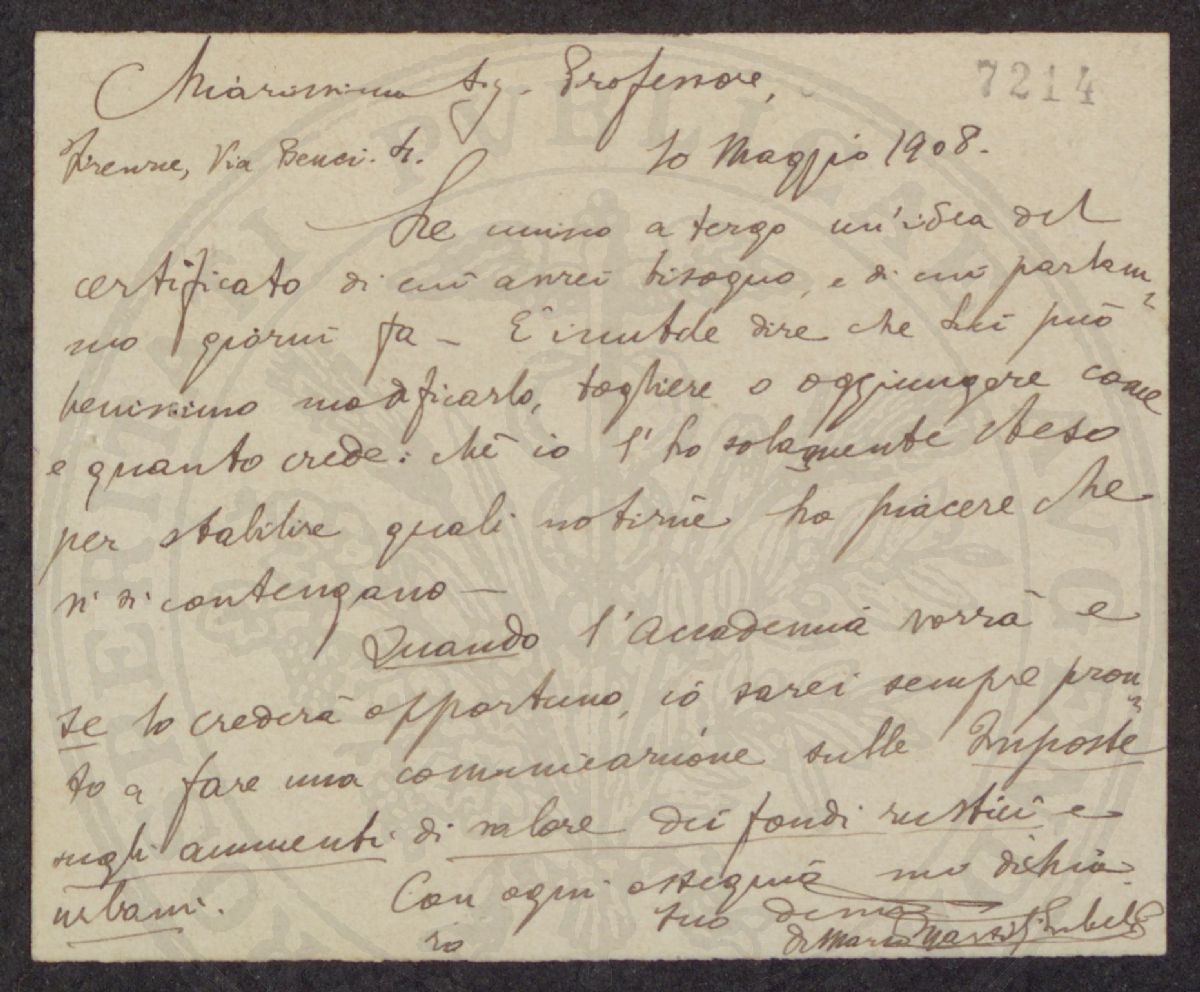 Chiarissimo Sig. Professore,
7214
Firenze, Via Benci. 4.
10 Maggio 1908.
Le unisco a tergo un'idea del
certificato di cui avrei bisogno, e di cui parlam-
mo giorni fa - È inutile dire che Lei può
benissimo modificarlo, togliere o aggiungere come
e quanto crede: chè io l'ho solamente steso
per stabilire quali notizie ho piacere che
vi si contengano -
Quando l'Accademia vorrà e
se lo crederà opportuno, io sarei sempre pron-
to a fare una comunicazione sulle Imposte
sugli aumenti di valore dei fondi rustici e
urbani.
Con ogni ossequio mi dichia-
ro
suo devmo
Dr Mario